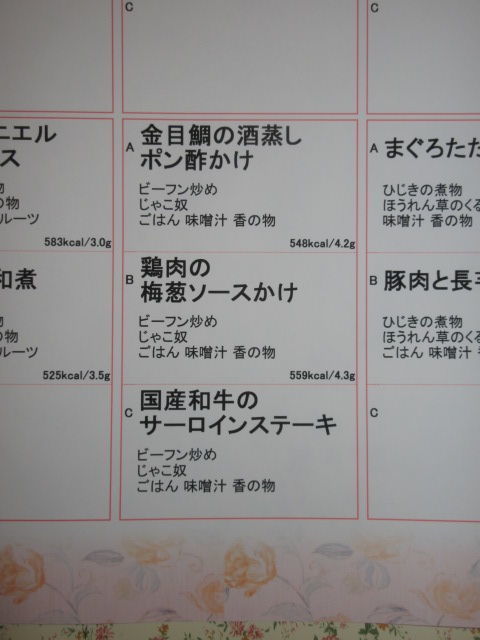 C
C
ニエル
ス
物
の物
ルーツ
583kcal/3.0g
和煮
物
の物
ルーツ
525kcal/3.5g
A
金目鯛の酒蒸し
ポン酢かけ
ビーフン炒め
じゃこ奴
ごはん 味噌汁 香の物
548kcal/4.2g
B
鶏肉の
梅葱ソースかけ
ビーフン炒め
じゃこ奴
ごはん 味噌汁 香の物
559kcal/4.3g
C
国産和牛の
サーロインステーキ
ビーフン炒め
じゃこ奴
ごはん 味噌汁 香の物
A
まぐろたた
ひじきの煮物
ほうれん草のくる
ごはん 味噌汁 香の物
B
豚肉と長芋
ひじきの煮物
ほうれん草のくる
ごはん 味噌汁 香の物
C